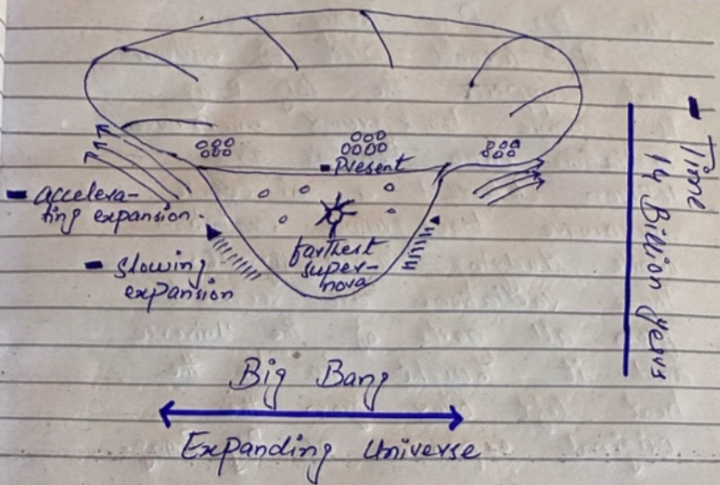 Present
accelera-
ting expansion.
slowing
expansion
farthest
super-
nova
Time
14 Billion years
Big Bang
Expanding Universe